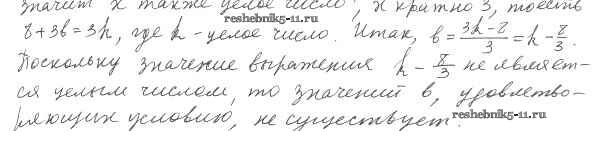 значит x также целое число, x кратно 3, то есть
reshebnik5-11.ru
8 + 3b = 3k, где k - целое число. Итак, b = \frac{3k-8}{3} = k - \frac{8}{3}.
Поскольку значение выражения k - \frac{8}{3} не являет-
ся целым числом, то значений b, удовлетво-
ряющих условию, не существует.
reshebnik5-11.ru